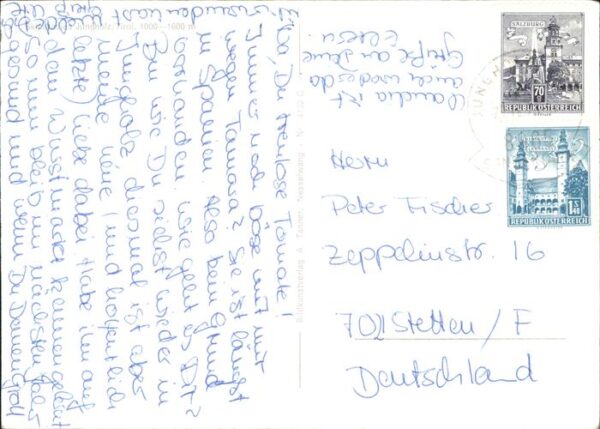 Jungholz, Tirol, 1000–1600 m
Du treulose Tomate!
Immer noch böse mit mir
wegen Tamara? Sie ist längst
in Spanien. Also kein Grund
vorhanden. Wie geht es Dir?
Bin wie Du siehst wieder in
Jungholz diesmal ist aber
meine neue (und hoffentlich
letzte) Liebe dabei. Habe im auf
dem Wurstmarkt kennengelernt
so nun bleib im nächsten Jahr
gesund und wenn Du
Claudia ist
auch wieder da
Grüße an Deine
Eltern.
SALZBURG
70
REPUBLIK ÖSTERREICH
1.40
S
REPUBLIK ÖSTERREICH
JUNGH
Herrn
Peter Fischer
Zeppelinstr. 16
7021 Stetten/F
Deutschland